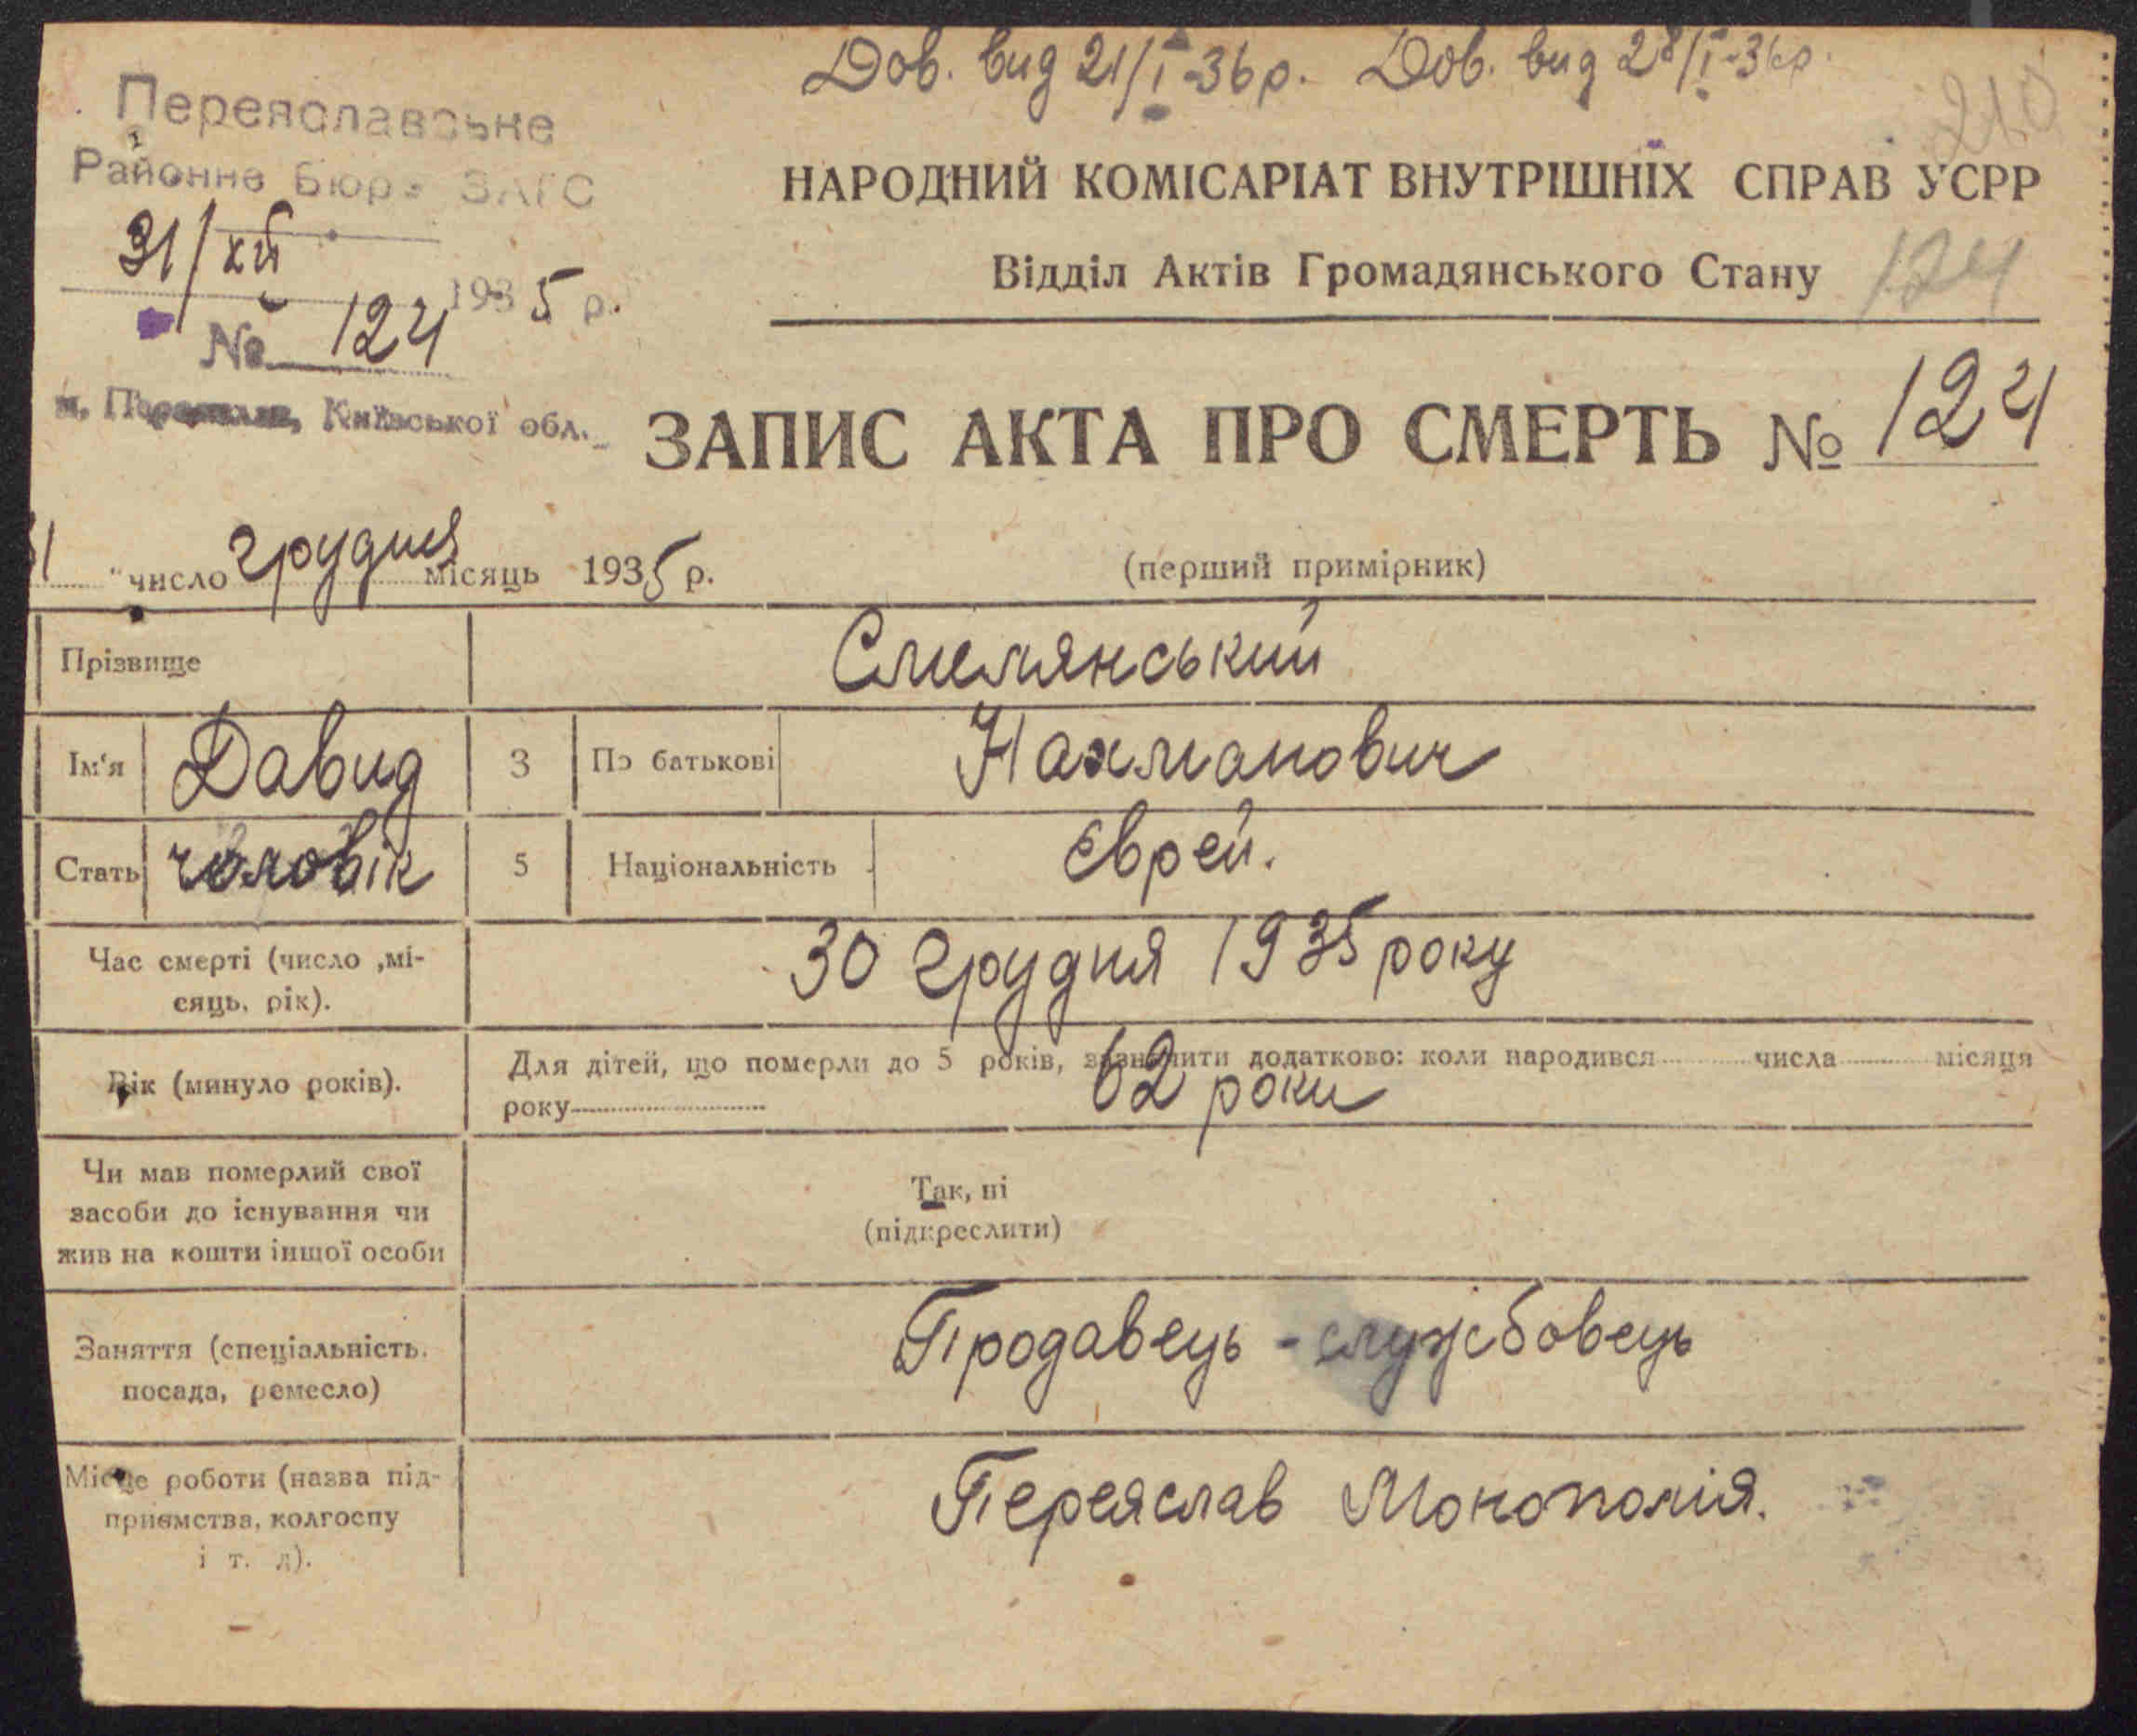 Дов. вид 21/I-36р. Дов. вид 28/I-36р.
210
Переяславське
Районне Бюро ЗАГС
31/XII 1935 р.
№ 124
м. Переяслав, Київської обл.
НАРОДНИЙ КОМІСАРІАТ ВНУТРІШНІХ СПРАВ УСРР
Відділ Актів Громадянського Стану 124
ЗАПИС АКТА ПРО СМЕРТЬ № 124
31 " число грудня місяць 1935 р. (перший примірник)
Прізвище Смилянський
Ім'я Давид 3 По батькові Нахманович
Стать чоловік 5 Національність єврей.
Час смерті (число ,мі-
сяць, рік). 30 грудня 1935 року
Вік (минуло років). Для дітей, що померли до 5 років, зазначити додатково: коли народився числа місяця
року 62 роки
Чи мав померлий свої
засоби до існування чи
жив на кошти іншої особи
Так, ні
(підкреслити)
Заняття (спеціальність,
посада, ремесло) Продавець - службовець
Місце роботи (назва під-
приємства, колгоспу
і т. д). Переяслав Монополія.